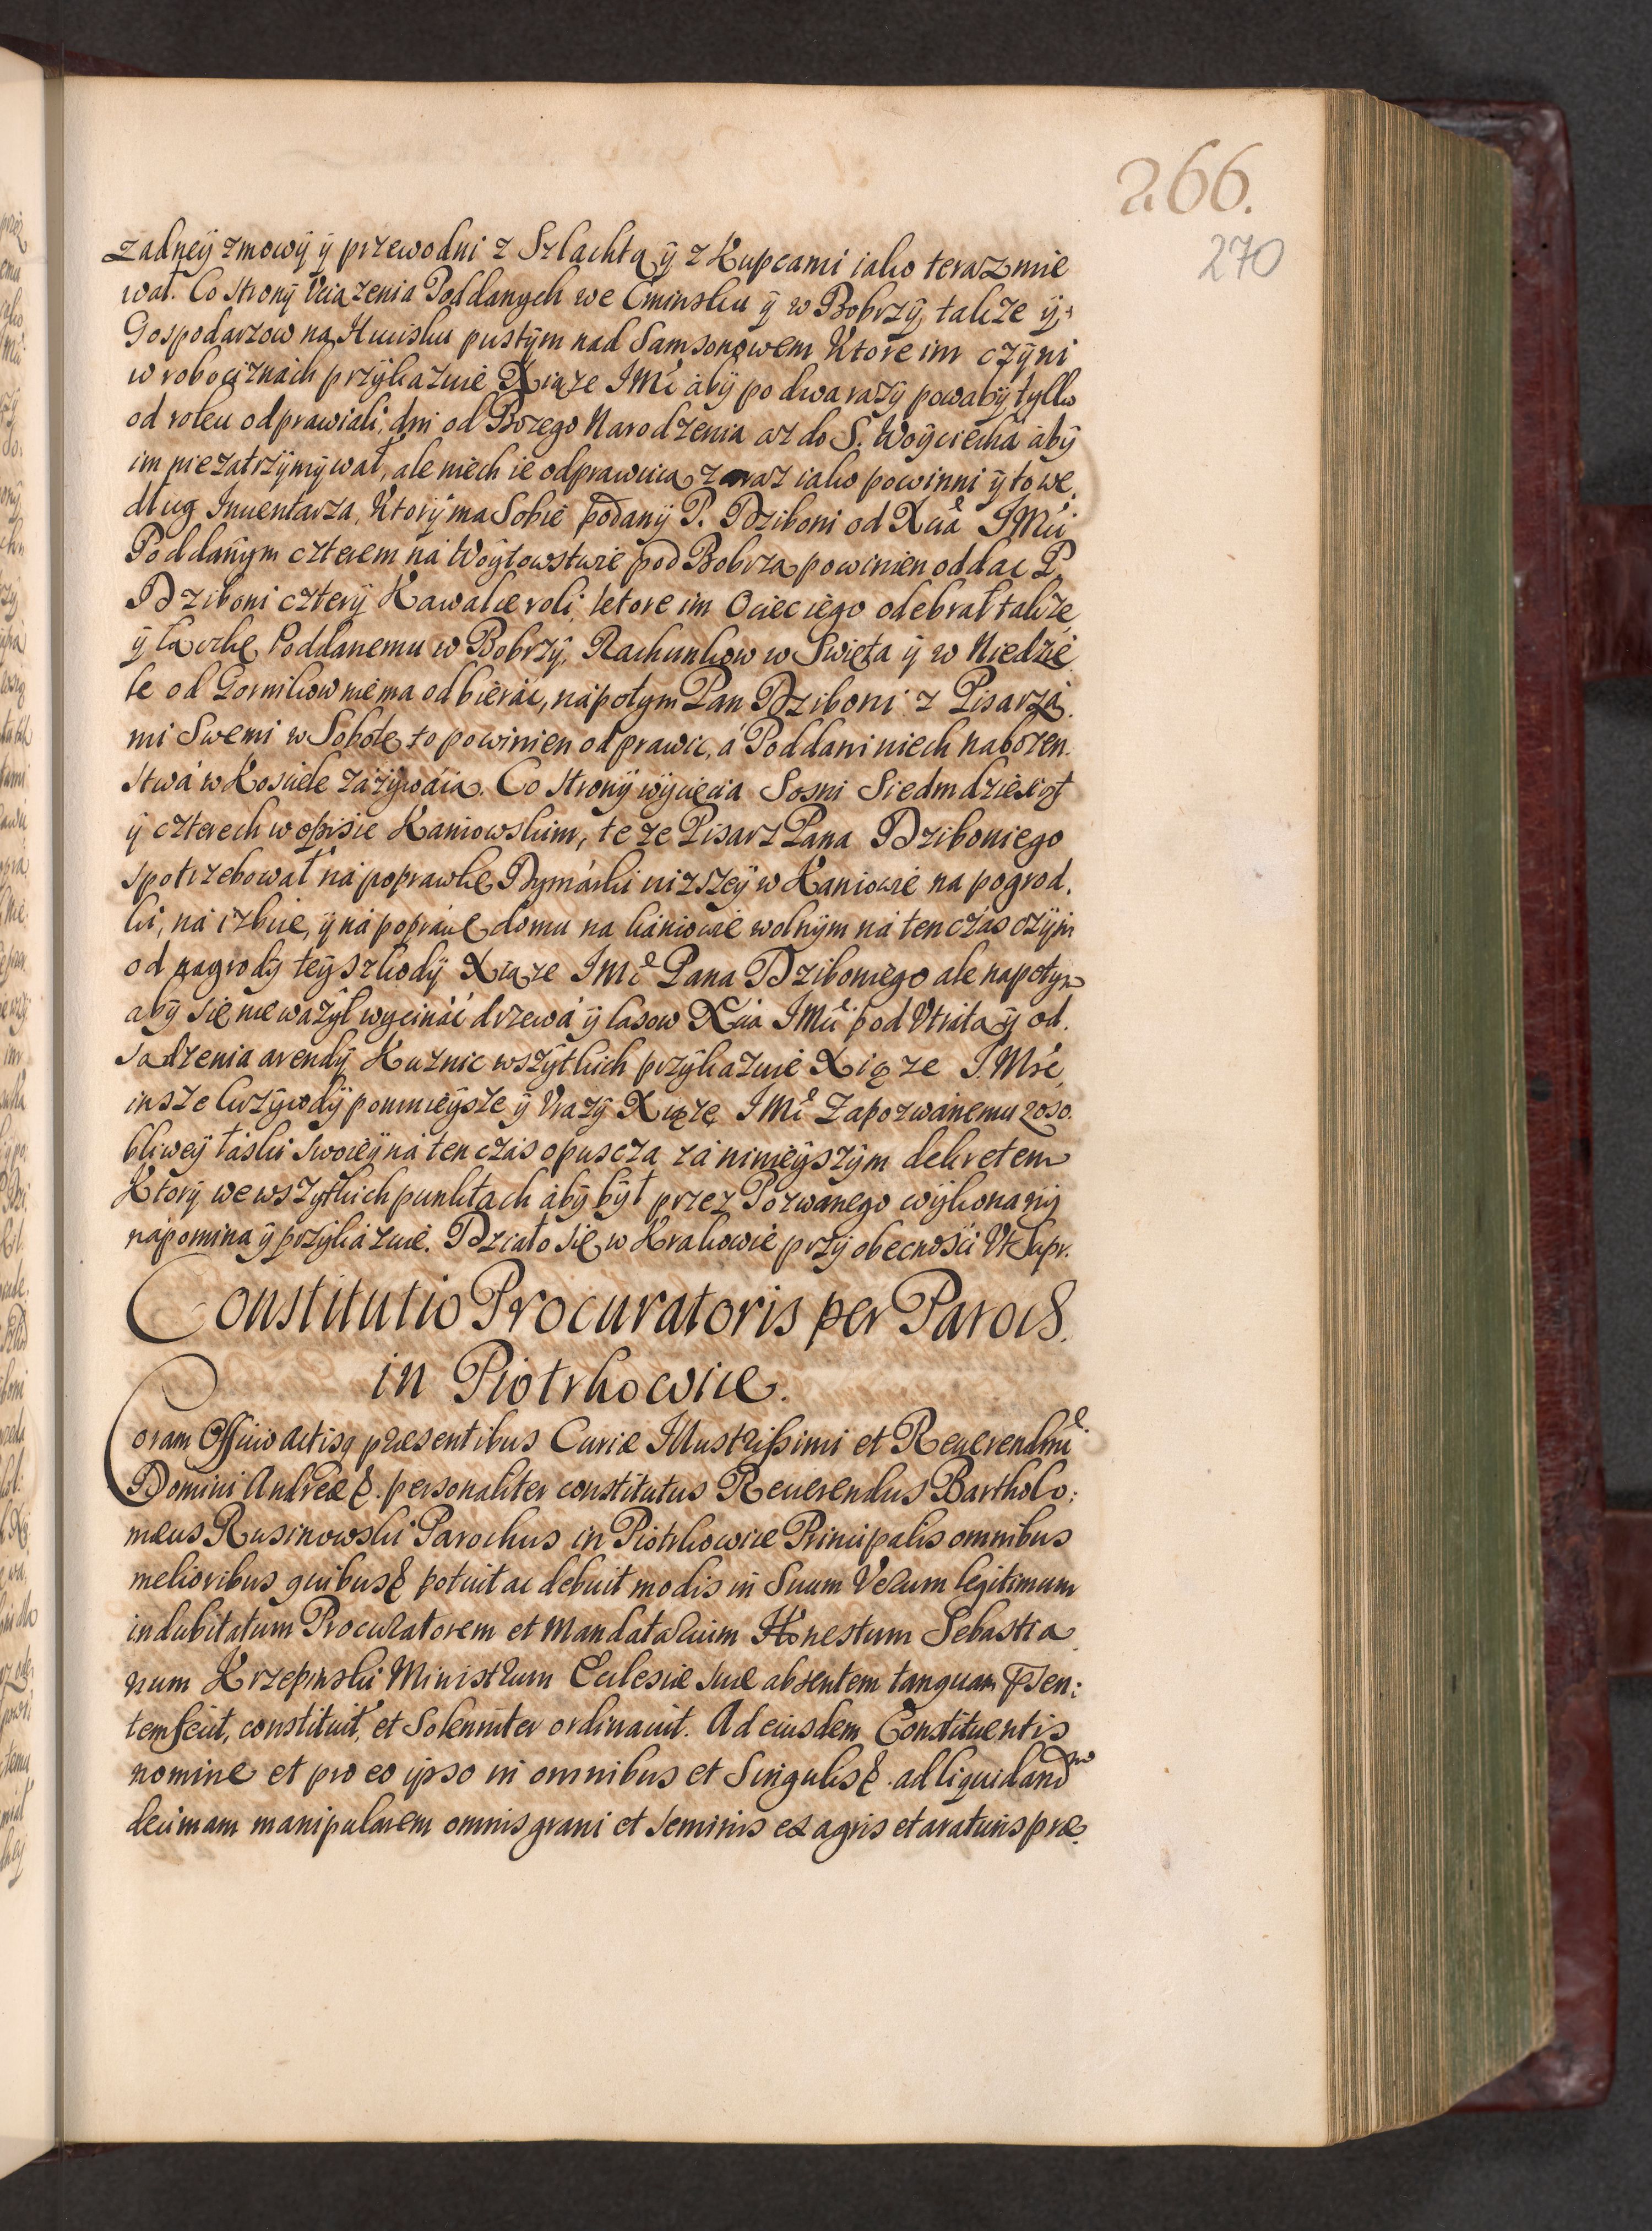 266.
270
zadneÿ zmowÿ ÿ przewodni z Szlachtą ÿ z Kupcami iako teraz mie
wał. Co stronÿ Vciązenia Poddanych we Cminsku ÿ w Bobrzÿ, takze ÿ
Gospodarzow na Hucisku pustÿm nad Samsonowem Ktore im czÿni
w robociznach przÿkazuie Xiąze JMć abÿ po dwa razÿ powabÿ tylko
od roku odprawiali, dni od Bozego Narodzenia az do S. Woÿciecha abÿ
im nie zatrzÿmÿwał, ale niech ie odprawuią zaraz iako powinni ÿ to we
dług Inuentarza, Ktorÿ ma Sobie podanÿ P. Dziboni od Xcia JMci
Poddanÿm czterem na Woÿtowstwie pod Bobrzą powinien oddac P.
Dziboni czterÿ Kawalce roli, ktore im Ociec iego odebrał takze,
ÿ łąckę Poddanemu w Bobrzÿ, Rachunkow w Swięta ÿ w Niedzie
le od Gornikow nie ma odbierac, napotym Pan Dziboni z Pisarza
mi Swemi w Sobotę to powinien odprawic, a Poddani niech nabozen
stwa w Kosciele zazÿwaią. Co stronÿ wÿcięcia Sosni Siedmdziesiąt
ÿ czterech w opisie Kaniowskim, te ze Pisarz Pana Dziboniego
spotrzebował na poprawkę Dÿmarki nizszeÿ w Kaniowie na pogrod
ki, na izbice, ÿ na poprawę domu na kaniowie wolnÿm na ten czas czÿni
od nagrodÿ teÿ szkodÿ Xiąze JMć Pana Dziboniego ale napotym
abÿ się nie wazÿł wycinać drzewa ÿ lasow Xcia JMci pod Vtratą ÿ od
sadzenia arendÿ Kuznic wszÿtkich przÿkazuie Xiąze J. Mść
insze krzÿwdÿ pomnieÿsze ÿ Vrazÿ Xiąze JMć Zapozwanemu z oso
bliweÿ łaski swoieÿ na ten czas opuscza za ninieÿszÿm dekretem
Ktorÿ we wszÿtkich punktach abÿ bÿł przez Pozwanego wÿkonanÿ
napomina ÿ przÿkazuie. Działo się w Krakowie przÿ obecności Vt Supr.
Constitutio Procuratoris per Paroch.
in Piotrkowice.
Coram Officio actisq præsentibus Curiæ Illustrissimi et Reuerendmi
Domini Andreæ &. personaliter constitutus Reuerendus Bartholo:
mæus Rusinowski Parochus in Piotrkowice Principalis omnibus
melioribus quibus& potuit ac debuit modis in Suum Verum legitimum
indubitatum Procuratorem et Mandatarium Honestum Sebastia
num Krzepinski Ministrum Ecclesiæ suæ absentem tanquam pr̄sen:
tem fecit, constituit, et Solenniter ordinauit. Ad eiusdem Constituentis
nomine et pro eo ipso in omnibus et Singulis& ad liquidandm
decimam manipularem omnis grani et seminis ex agris et araturis præ